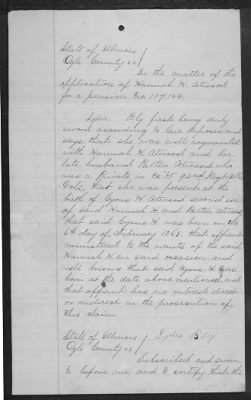 State of Illinois
Ogle County ss
In the matter of the
application of Hannah H. Atwood
for a pension No. 177.144.
Lydia Bly first being duly
sworn according to law deposes and
says that she was well acquainted
with Hannah H. Atwood and her
late husband Patten Atwood who
was a private in Co "H" 92nd Regt Ills
Vols, that she was present at the
birth of Cyrus H Atwood second son
of said Hannah H. and Patten Atwood
that said Cyrus H was born on the
6th day of February 1863, that affiant
ministered to the wants of the said
Hannah H. on said occasion and
well knows that said Cyrus H was
born at the date above mentioned and
that affiant has no interest direct
or indirect in the prosecution of
this claim
State of Illinois Lydia Bly
Ogle County ss
Subscribed and sworn
to before me and I certify that the